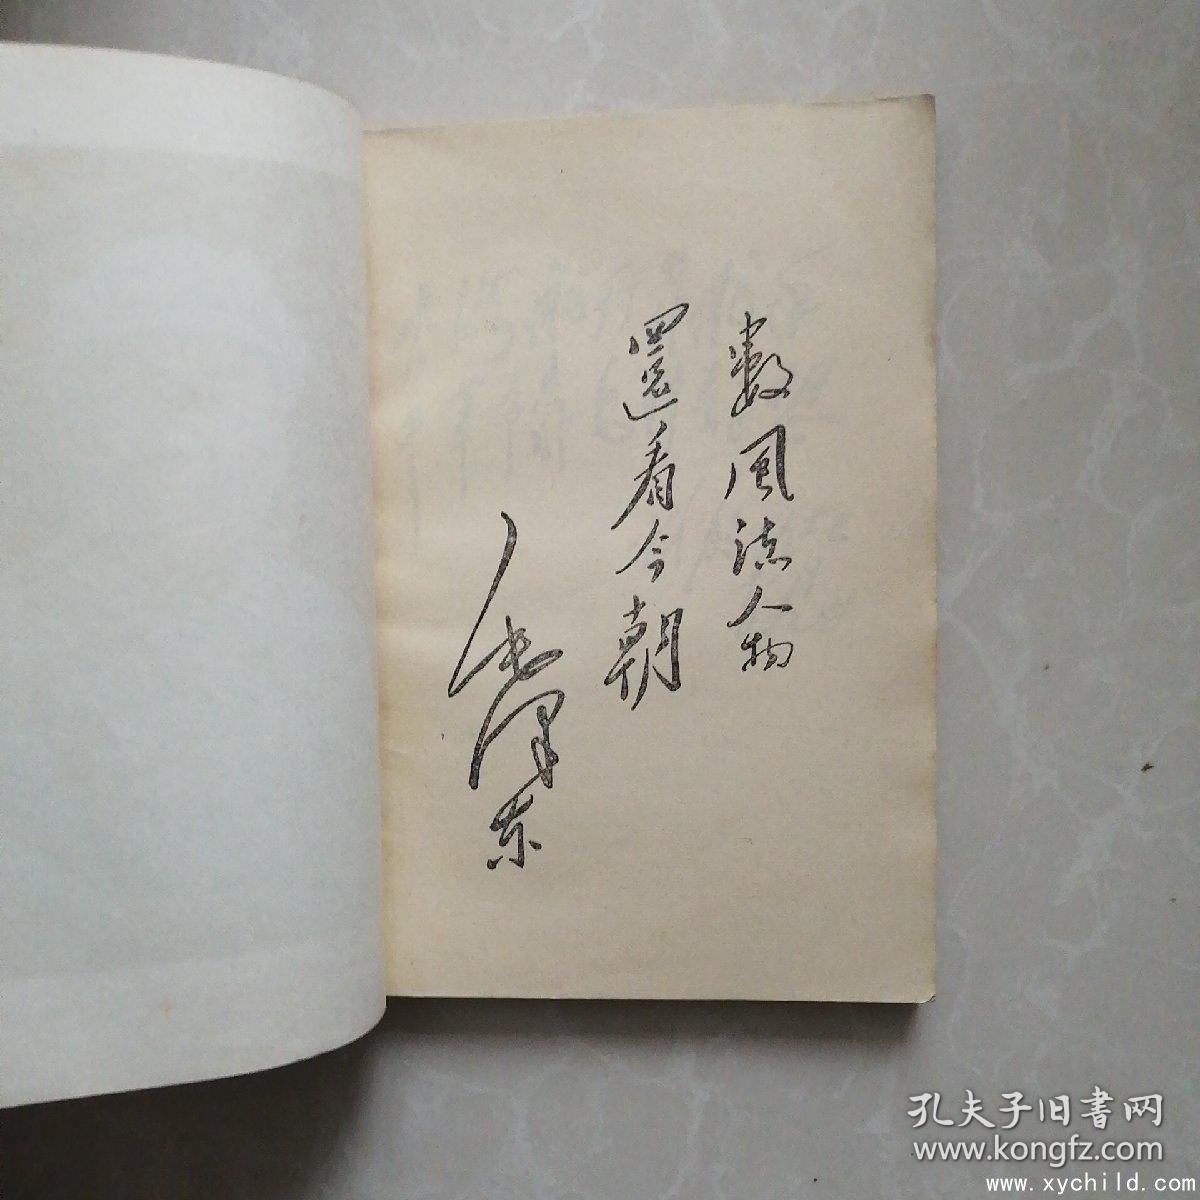 數風流人物
還看今朝
毛澤东
孔夫子旧書网
www.kongfz.com
www.xychild.com